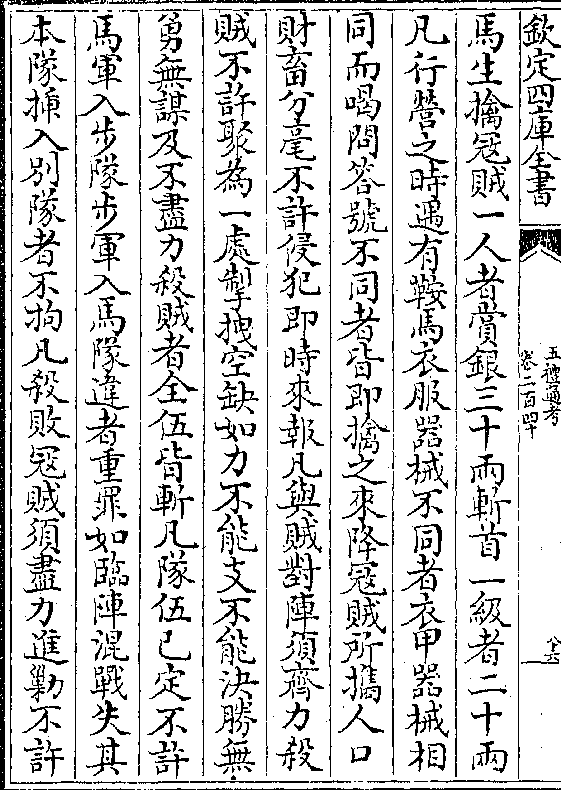 欽定四庫全書
五禮通考
卷二百四十
六
馬生擒冦賊一人者賞銀三十兩斬首一級者二十兩
凡行營之時遇有鞍馬衣服器械不同者衣甲器械相
同而喝問答號不同者皆即擒之來降冦賊所攜人口
財畜分毫不許侵犯即時來報凡與賊對陣須齊力殺
賊不許聚為一處掣拽空缺如力不能支不能決勝無
勇無謀及不盡力殺賊者全伍皆斬凡隊伍已定不許
馬軍入步隊步軍入馬隊違者重罪如臨陣混戰失其
本隊揷入別隊者不拘凡殺敗冦賊須盡力進勦不許